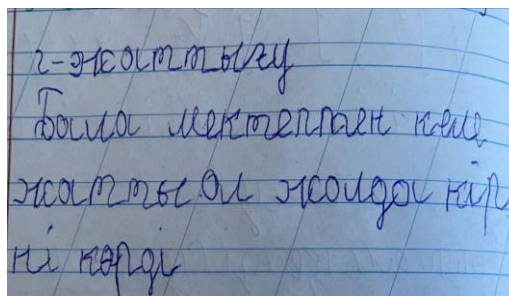 2-жаттығу
Бала мектептен келе
жатты ол жолда кір
ні көрді